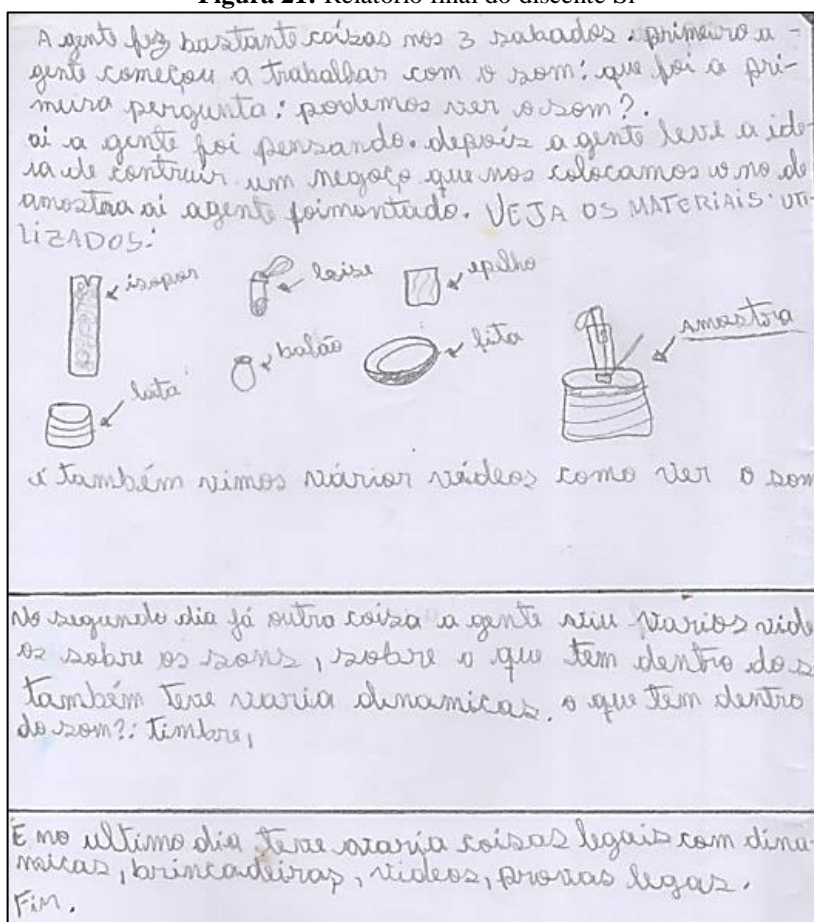 Figura 21: Relatório final do discente SI
A gente fez bastante coizas nos 3 sabados. primeiro a -
gente começou a trabalhar com o som: que foi a pri-
meira pergunta: podemos ver o som?.
ai a gente foi pensando. depois a gente teve a ide-
ia de contruir um negoço que nos colocamos o no de
amostra ai agente foi montado. VEJA OS MATERIAIS UTI-
LIZADOS:
isopor laise epilho
balão fita amostra
lata
i também vimos várior vídeos como ver o som
No segundo dia já outra coiza a gente viu varios vide
os sobre os sons, sobre o que tem dentro do s
também teve varia dinamicas. o que tem dentro
do som?: timbre,
E no ultimo dia teve varia coisas legais com dina-
micas, brincadeiras, videos, provas legas.
Fim.